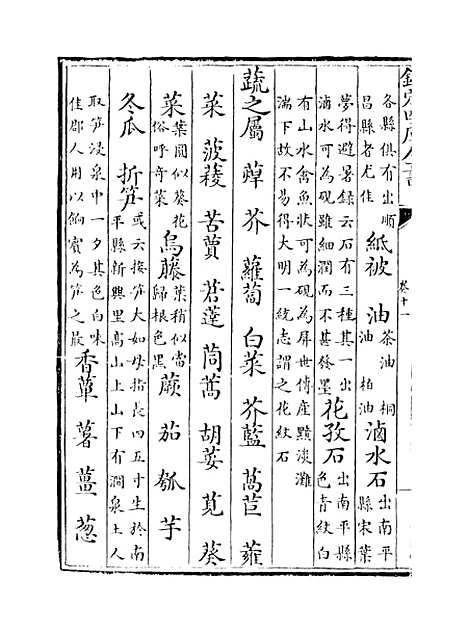 欽定四庫全書
卷十一
各縣俱有出順
昌縣者尤佳
紙被
油
茶油 桐
油 柏油
滷水石
出南平
縣宋葉
夢得避暑錄云石有三種其一出
滷水可為硯雖細潤而不甚發墨
花孜石
出南平縣
色青紋白
有山水禽魚狀可為硯為屏世傳産黯淡灘
湍下故不易得大明一統志謂之花紋石
蔬之屬 蓴 芥 蘿蔔 白菜 芥藍 萵苣 蕹
菜 菠薐 苦蕒 莙蓬 茼蒿 胡荽 莧 葵
菜
葉圓似葵花
俗呼奇菜
烏藤
葉稍似當
歸根色黑
蕨 茄 瓠 芋
冬瓜 折笋
或云接笋大如母指長四五寸生於南
平縣新興里高山上山下有澗泉土人
取笋浸泉中一夕其色白味
佳郡人用以餉賓為笋之最
香蕈 薯 薑 葱